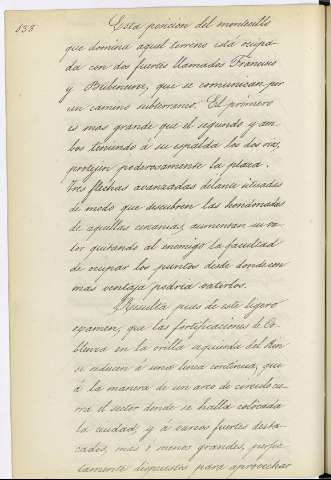 838
Esta porcion del montecillo
que domina aquel terreno está ocupa-
da con dos fuertes llamados Francisco
y               , que se comunican por
un camino subterraneo. El primero
es mas grande que el segundo y am-
bos teniendo á su espalda los dos rios,
protejen poderosamente la plaza.
Tres flechas avanzadas delante situadas
de modo que descubren las hondonadas
de aquellas cercanias aumentan su va-
lor quitando al enemigo la facultad
de ocupar los puntos desde donde con
mas ventaja podria batirlos.
Resulta pues de este ligero
examen, que las fortificaciones de Co-
blenza en la orilla izquierda del Rin
se reducen á una linea continua, que
á la manera de un arco de circulo cie-
rra el sector donde se halla colocada
la ciudad, y á varios fuertes desta-
cados, mas ó menos grandes, perfec-
tamente dispuestos para aprovechar